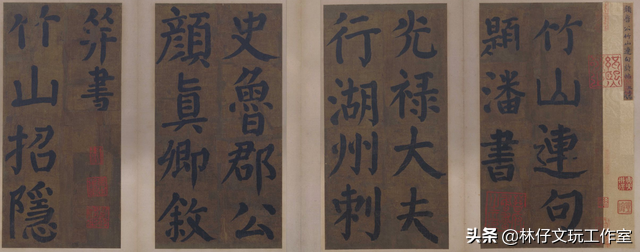 竹山連句
題潘書
光禄大夫
行湖州刺
史魯郡公
顔真卿敘
并書
竹山招隱
头条 @林仔文玩工作室